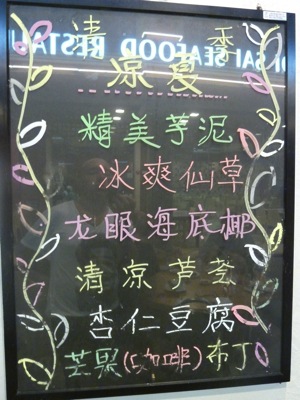 清 一 香
SAI SEAFOOD RESTAU
凉夏
精美芋泥
冰爽仙草
龙眼海底椰
清凉芦荟
杏仁豆腐
芒果(咖啡)布丁